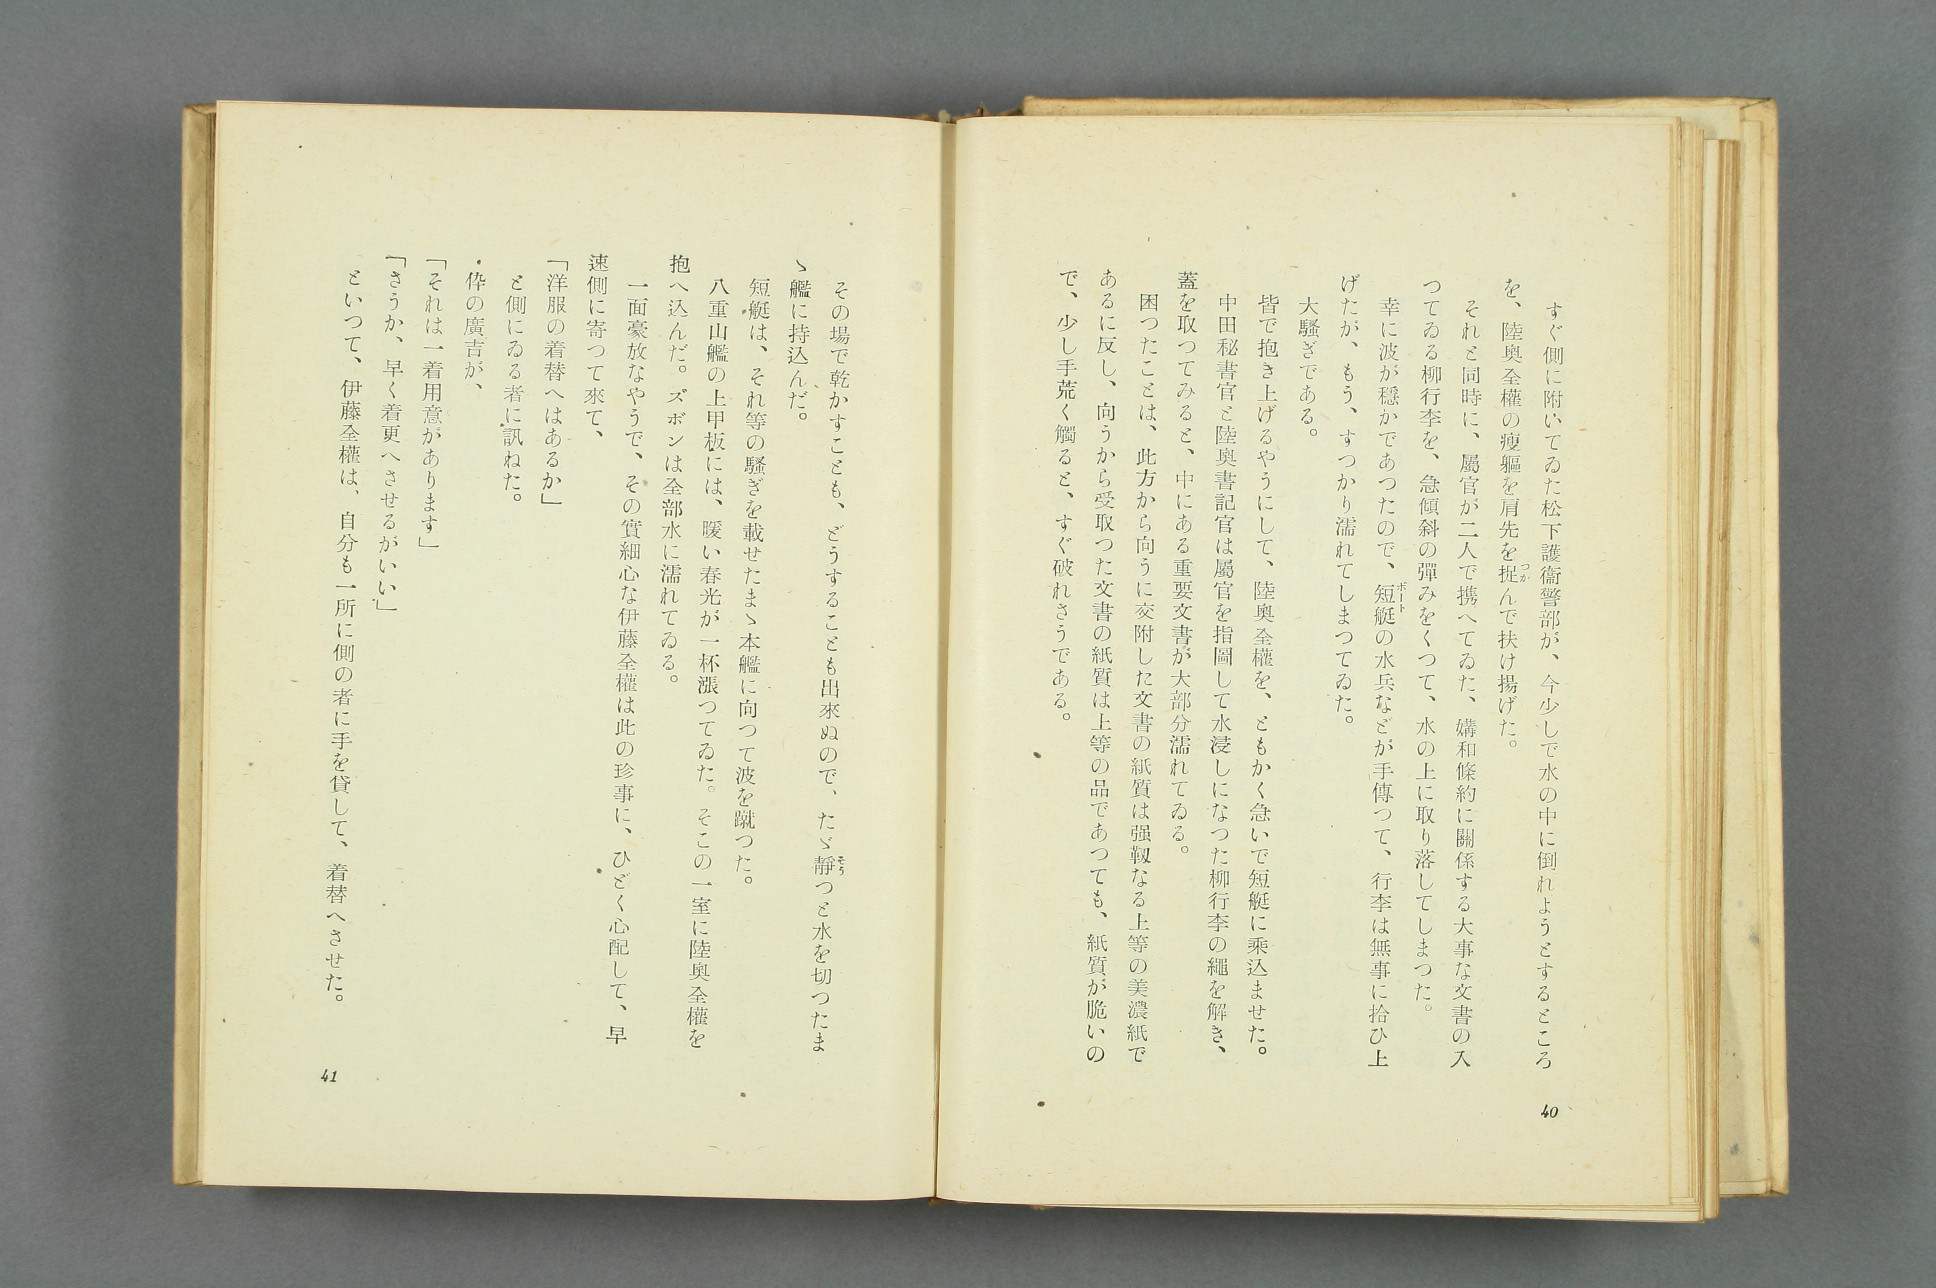 すぐ側に附いてゐた松下護衞警部が、今少しで水の中に倒れようとするところ
を、陸奥全權の瘦軀を肩先を捉んで扶け揚げた。
つか
それと同時に、屬官が二人で携へてゐた、媾和條約に關係する大事な文書の入
つてゐる柳行李を、急傾斜の彈みをくつて、水の上に取り落してしまつた。
幸に波が穩かであつたので、短艇の水兵などが手傳つて、行李は無事に拾ひ上
ボート
げたが、もう、すつかり濡れてしまつてゐた。
大騷ぎである。
皆で抱き上げるやうにして、陸奥全權を、ともかく急いで短艇に乘込ませた。
中田秘書官と陸奥書記官は屬官を指圖して水浸しになつた柳行李の繩を解き、
蓋を取つてみると、中にある重要文書が大部分濡れてゐる。
困つたことは、此方から向うに交附した文書の紙質は强靱なる上等の美濃紙で
あるに反し、向うから受取つた文書の紙質は上等の品であつても、紙質が脆いの
で、少し手荒く觸ると、すぐ破れさうである。
40
その場で乾かすことも、どうすることも出來ぬので、たゞ靜つと水を切つたま
そう
ゝ艦に持込んだ。
短艇は、それ等の騷ぎを載せたまゝ本艦に向つて波を蹴つた。
八重山艦の上甲板には、暖い春光が一杯漲つてゐた。そこの一室に陸奥全權を
抱へ込んだ。ズボンは全部水に濡れてゐる。
一面豪放なやうで、その實細心な伊藤全權は此の珍事に、ひどく心配して、早
速側に寄つて來て、
「洋服の着替へはあるか」
と側にゐる者に訊ねた。
伜の廣吉が、
「それは一着用意があります」
「さうか、早く着更へさせるがいい」
といつて、伊藤全權は、自分も一所に側の者に手を貸して、着替へさせた。
41